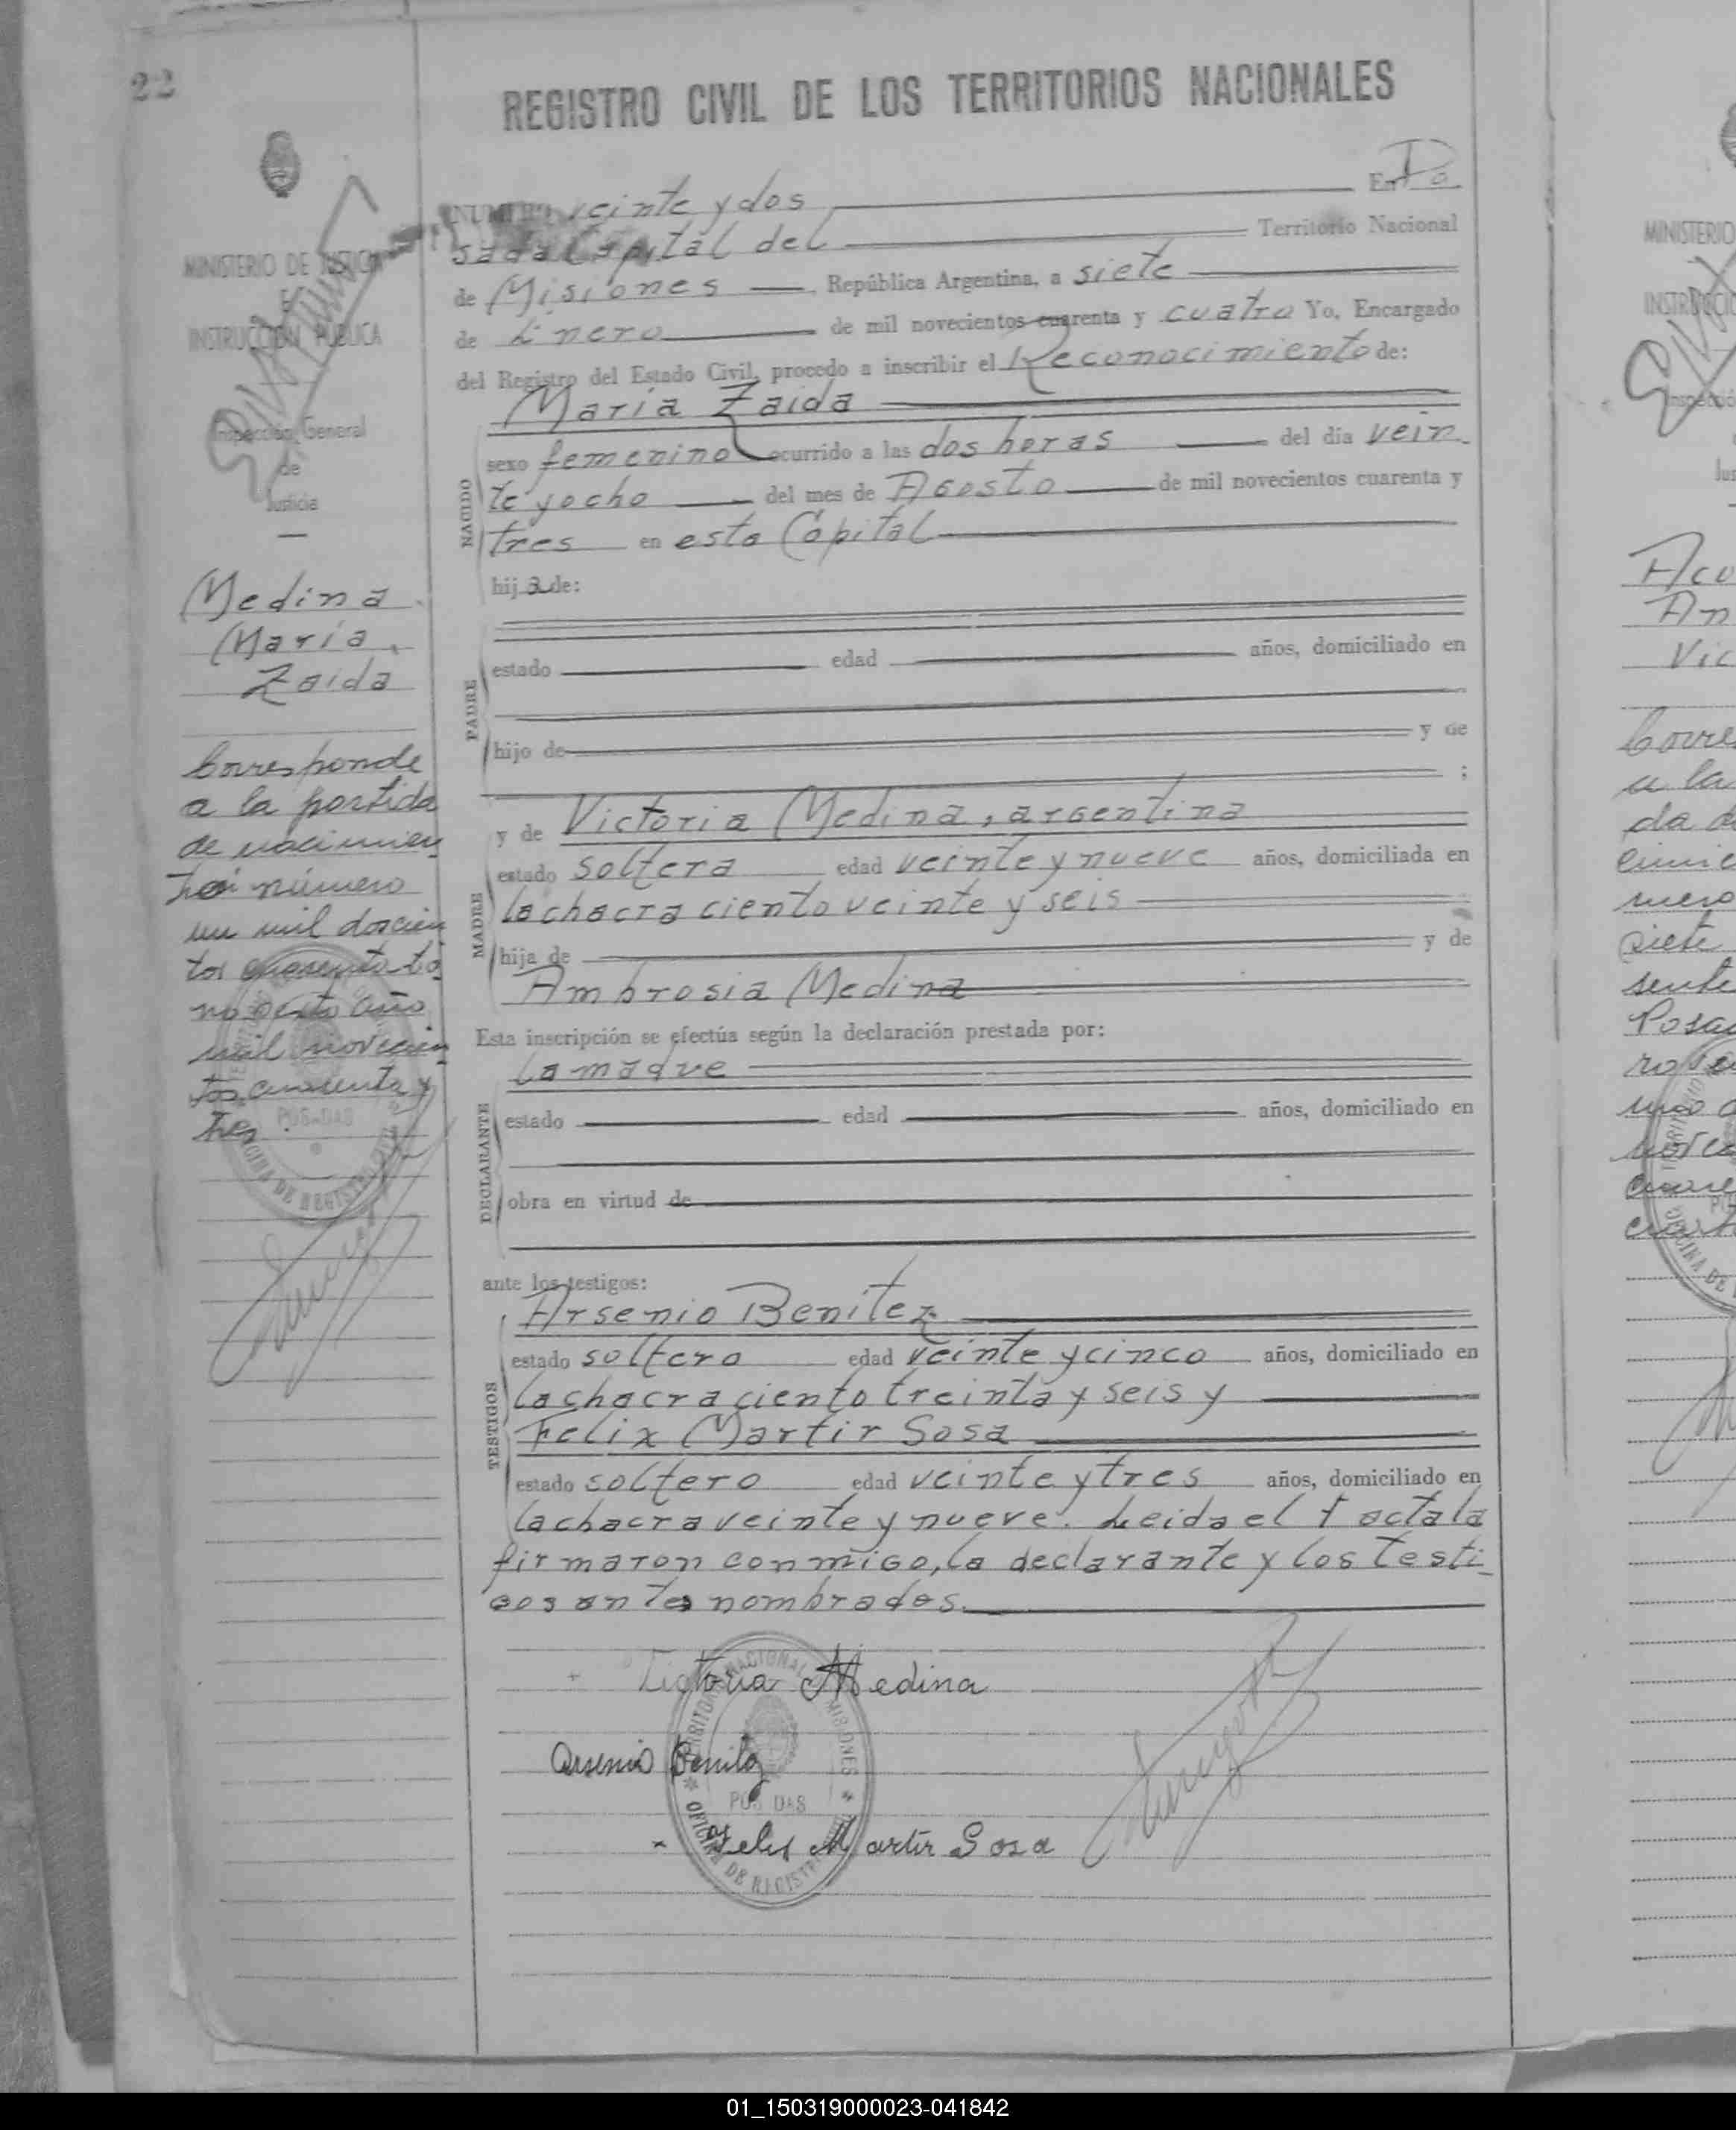 22
REGISTRO CIVIL DE LOS TERRITORIOS NACIONALES
NUMERO veinte y dos En Po
sada Capital del Territorio Nacional
de Misiones República Argentina, a siete
de Enero de mil novecientos cuarenta y cuatro Yo, Encargado
del Registro del Estado Civil, procedo a inscribir el Reconocimiento de:
María Zaida
NACIDO
sexo femenino ocurrido a las dos horas del día vein-
te y ocho del mes de Agosto de mil novecientos cuarenta y
tres en esta Capital
hija de:
PADRE
estado edad años, domiciliado en
hijo de y de
;
MADRE
y de Victoria Medina, argentina
estado soltera edad veinte y nueve años, domiciliada en
la chacra ciento veinte y seis
hija de y de
Ambrosia Medina
Esta inscripción se efectúa según la declaración prestada por:
La madre
DECLARANTE
estado edad años, domiciliado en
obra en virtud de
ante los testigos:
TESTIGOS
Arsenio Benitez
estado soltero edad veinte y cinco años, domiciliado en
la chacra ciento treinta y seis y
Felix Martir Sosa
estado soltero edad veinte y tres años, domiciliado en
la chacra veinte y nueve. Leida el acta la
firmaron conmigo, la declarante y los testi-
gos antes nombrados.
Victoria Medina
Arsenio Benitez
Felix Martir Sosa
TERRITORIO NACIONAL MISIONES
POSADAS
OFICINA DE REGISTRO
MINISTERIO DE JUSTICIA
E
INSTRUCCIÓN PÚBLICA
Inspección General
de
Justicia
Medina
María
Zaida
Corresponde
a la partida
de nacimien
número
un mil doscien
tos
no esta año
mil novecien
tos cuarenta y
tres.
POSADAS
OFICINA DE REGISTRO
MINISTERIO
Vic
a la
Posad
01_150319000023-041842